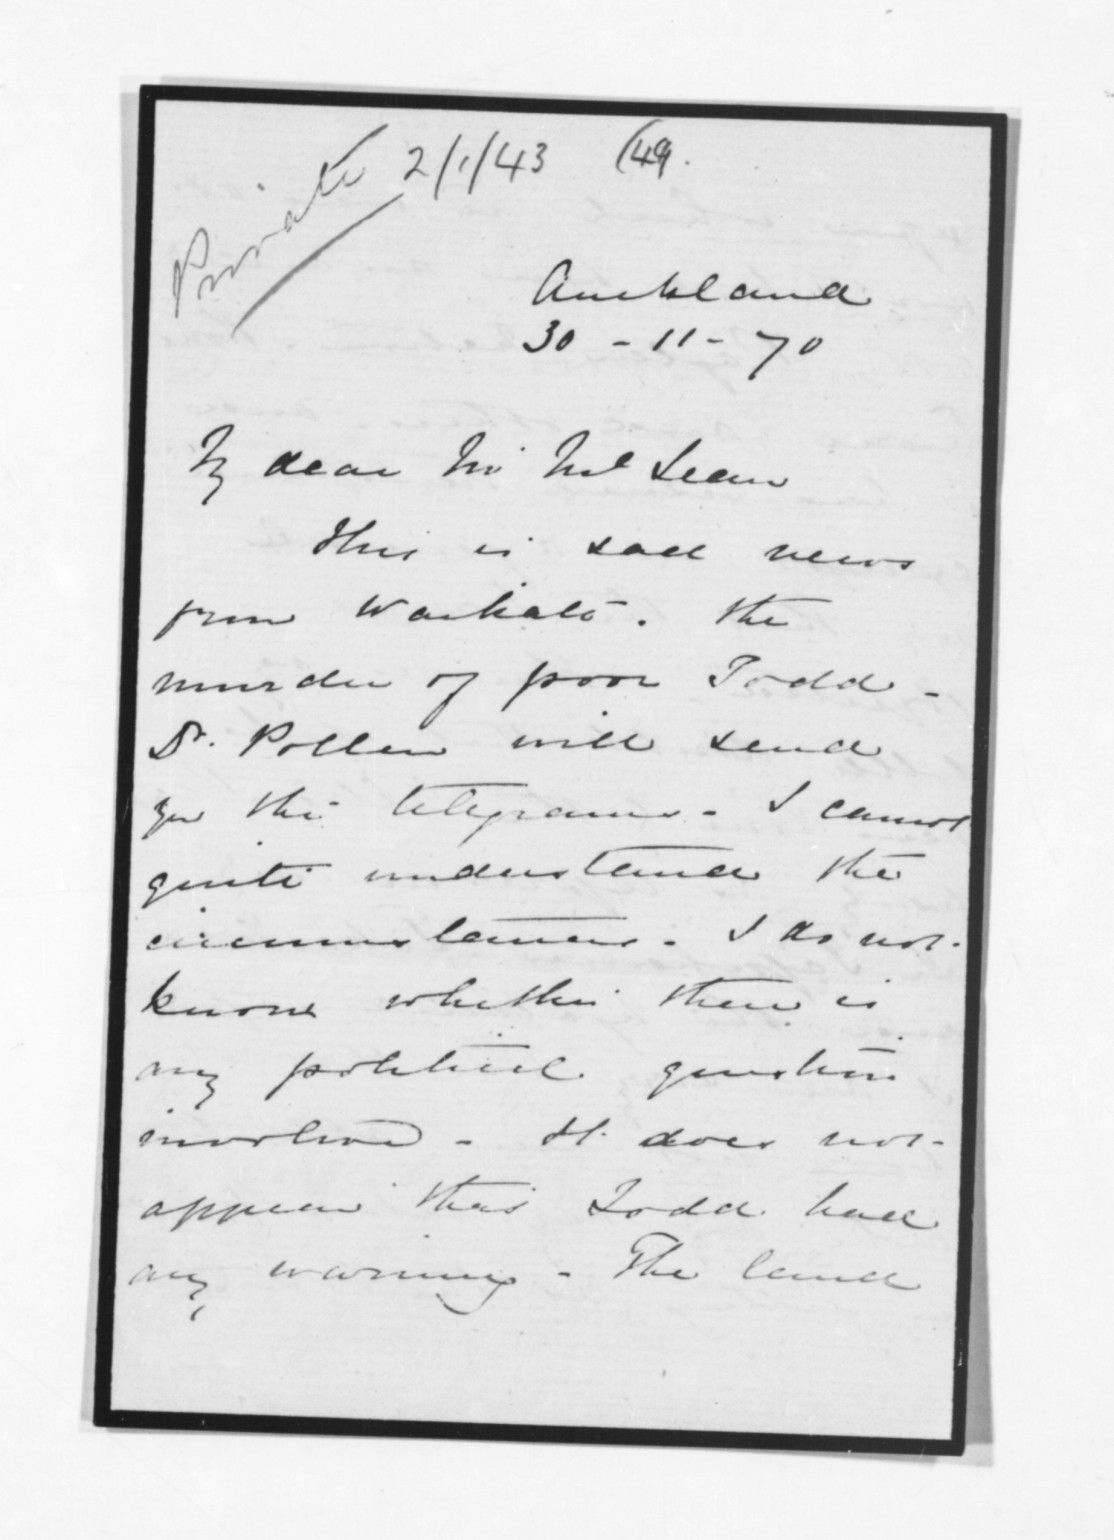 Private 2/1/43 (49.
Auckland
30 - 11 - 70
My dear Mr McLean
This is sad news
from Waikato. The
murder of poor Todd -
Dr. Pollen will send
you the telegrams - I cannot
quite understand the
circumstances - I do not
know whether there is
any political question
involved - It does not
appear that Todd had
any warning - The land